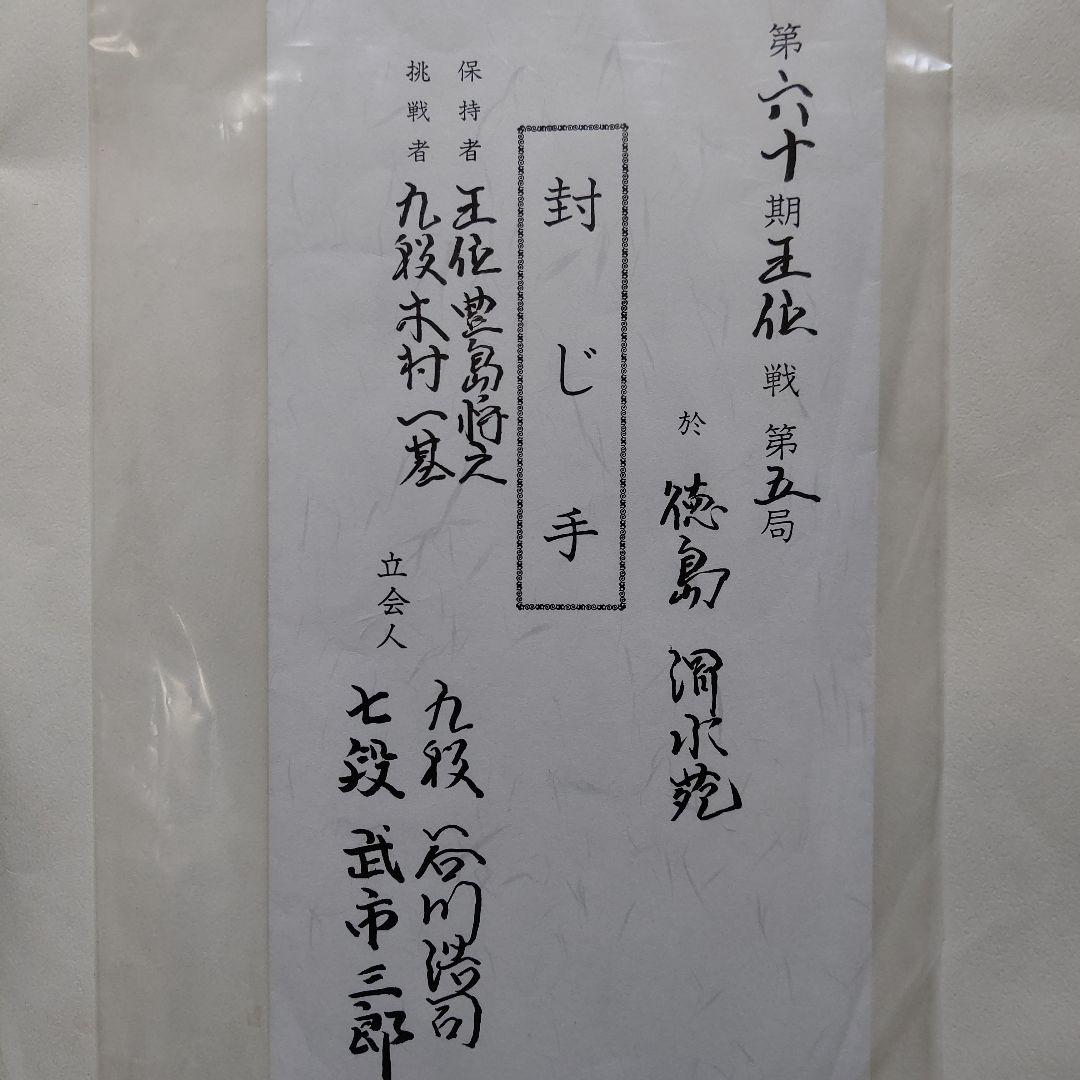 第六十期王位戦第五局
於 徳島 渭水苑
封じ手
保持者 王位 豊島将之
挑戦者 九段 木村一基
立会人
九段 谷川浩司
七段 武市三郎